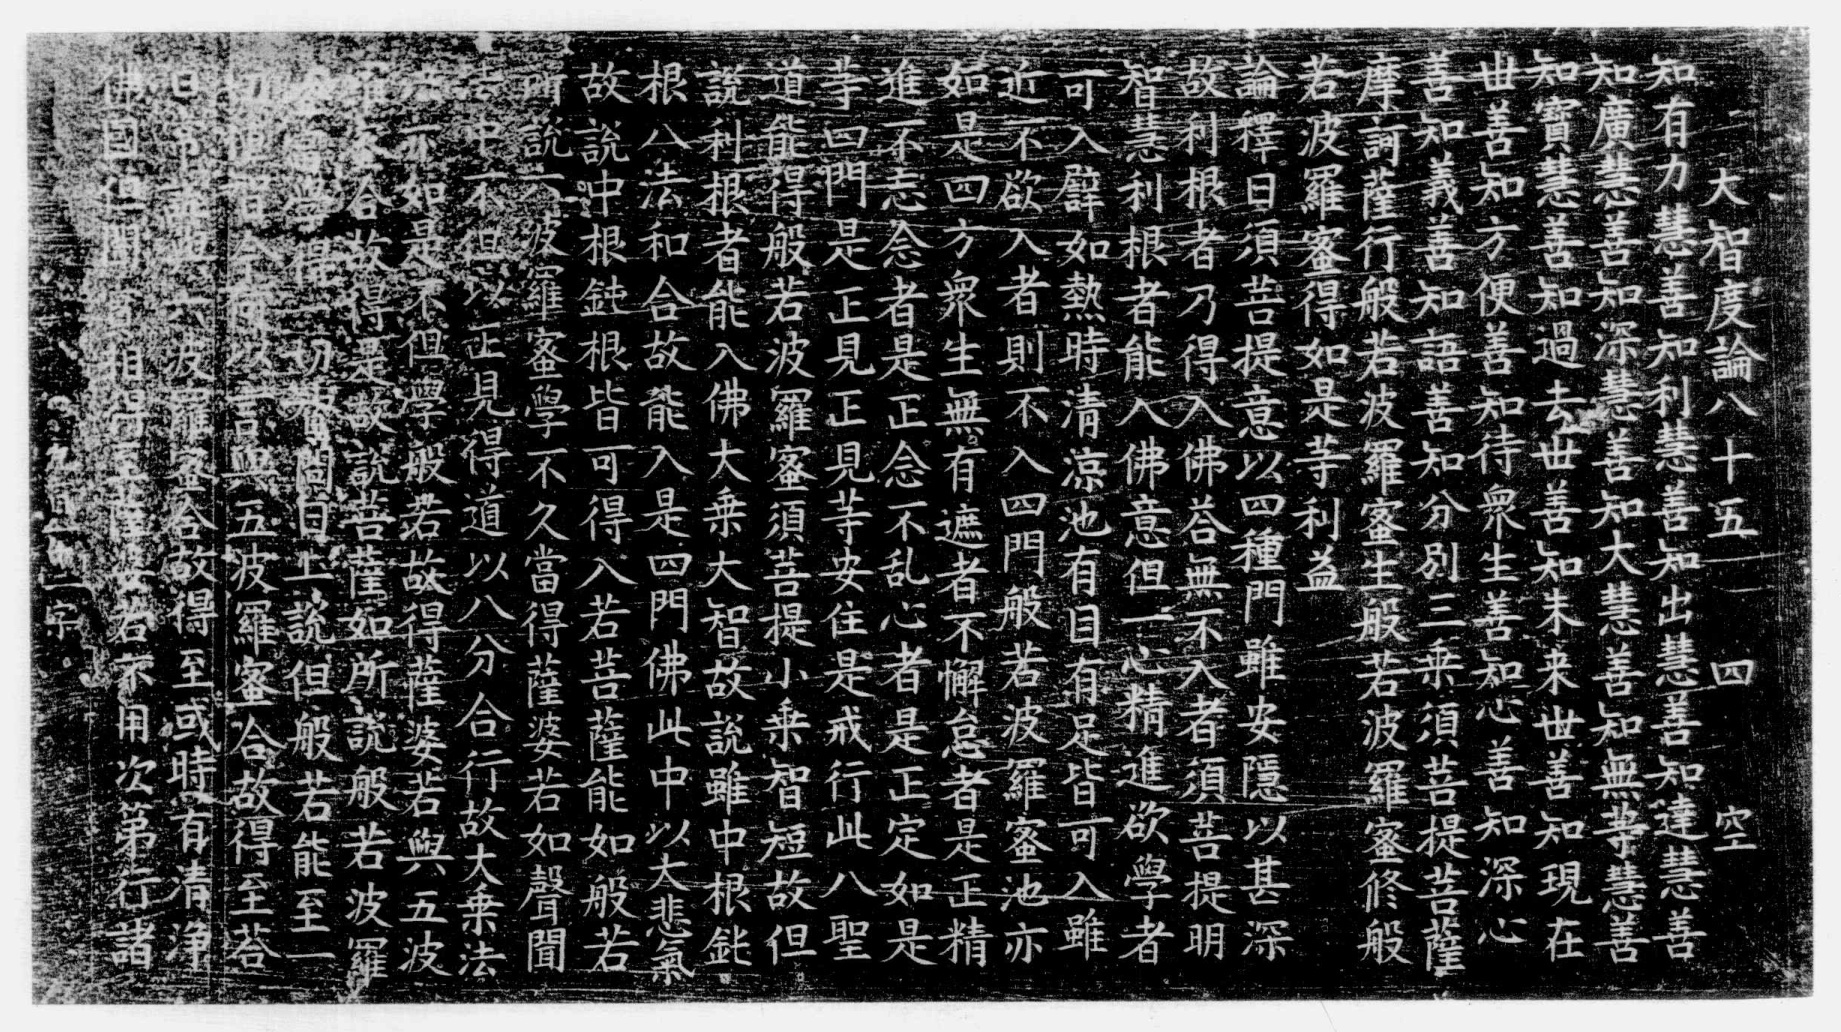 大智度論八十五 四 空
知有力慧善知利慧善知出慧善知達慧善
知廣慧善知深慧善知大慧善知無等慧善
知寶慧善知過去世善知未来世善知現在
世善知方便善知待衆生善知心善知深心
善知義善知語善知分別三乗須菩提菩薩
摩訶薩行般若波羅蜜生般若波羅蜜修般
若波羅蜜得如是等利益
論釋曰須菩提意以四種門雖安隱以甚深
故利根者乃得入佛荅無不入者須菩提明
智慧利根者能入佛意但一心精進欲學者
可入譬如熱時清涼池有目有足皆可入雖
近不欲入者則不入四門般若波羅蜜池亦
如是四方衆生無有遮者不懈怠者是正精
進不志念者是正念不乱心者是正定如是
等四門是正見正見等安住是戒行此八聖
道能得般若波羅蜜須菩提小乗智短故但
說利根者能入佛大乗大智故說雖中根鈍
根八法和合故能入是四門佛此中以大悲氣
故說中根鈍根皆可得入若菩薩能如般若
所說六波羅蜜學不久當得薩婆若如聲聞
法中不但以正見得道以八分合行故大乗法
亦如是不但學般若故得薩婆若與五波
合故得是故說菩薩如所說般若波羅
當學得一切 曰上說但般若能至一
切 今何以言與五波羅蜜合故得至荅
曰 六波羅蜜合故得至或時有清淨
佛國但聞實相得至薩婆若不用次第行諸